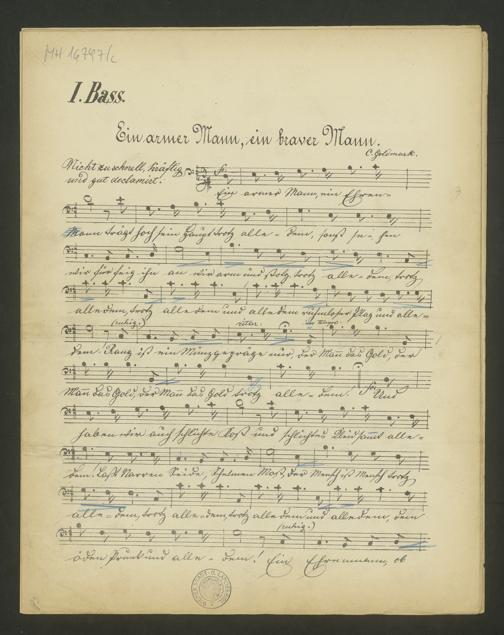 MH 14797/c
I. Bass.
Ein armer Mann, ein braver Mann.
C. Goldmark.
Nicht zu schnell, kräftig
und gut declamirt.
Ein armer Mann, ein Ehren-
Mann trägt hoch sein Haupt trotz alle - dem, sonst se - hen
wir für feig ihn an wir arm und stolz trotz alle - dem, trotz
alledem, trotz alledem und alledem ruhmloser Plag und alle-
(ruhig.) riten.
dem! Rang ist ein Münzgepräge nur, der Mann das Gold, der
Mann das Gold, der Mann das Gold trotz alle - dem. Und
haben wir auch schlichte Kost und schlichtes Kleid sammt alle-
dem. Laßt Narren Seide, Schelmen Most, der Mensch ist Mensch trotz
alle - dem, trotz alle - dem, trotz alle dem und alledem, dem
(ruhig.)
öden Prunk und alle - dem! Ein Ehrenmann, ob